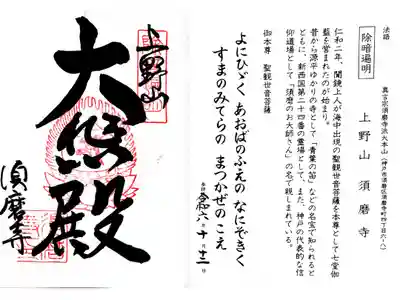 法語
除暗遍明
真言宗須磨寺派大本山(神戸市須磨区須磨寺町四丁目六-八)
上野山 須磨寺
仁和二年、聞鏡上人が海中出現の聖観世音菩薩を本尊として七堂伽
藍を営まれたのが始まり。
昔から源平ゆかりの寺として「青葉の笛」などの名宝で知られると
ともに、新西国第二十四番の霊場として、また、神戸の代表的な信
仰道場として「須磨のお大師さん」の名で親しまれている。
御本尊 聖観世音菩薩
よにひゞく あおばのふえの なにぞきく
すまのみてらの まつかぜのこえ
令和六 十月十二
上野山
大悲殿
須磨寺